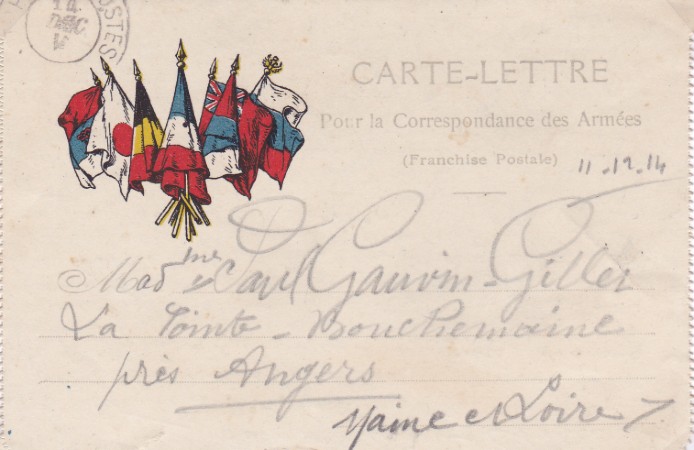 14
DEC
POSTES
CARTE-LETTRE
Pour la Correspondance des Armées
(Franchise Postale)
11.12.14
Madme Paul Gauvin-Gillet
La Pointe-Bouchemaine
près Angers
Maine et Loire